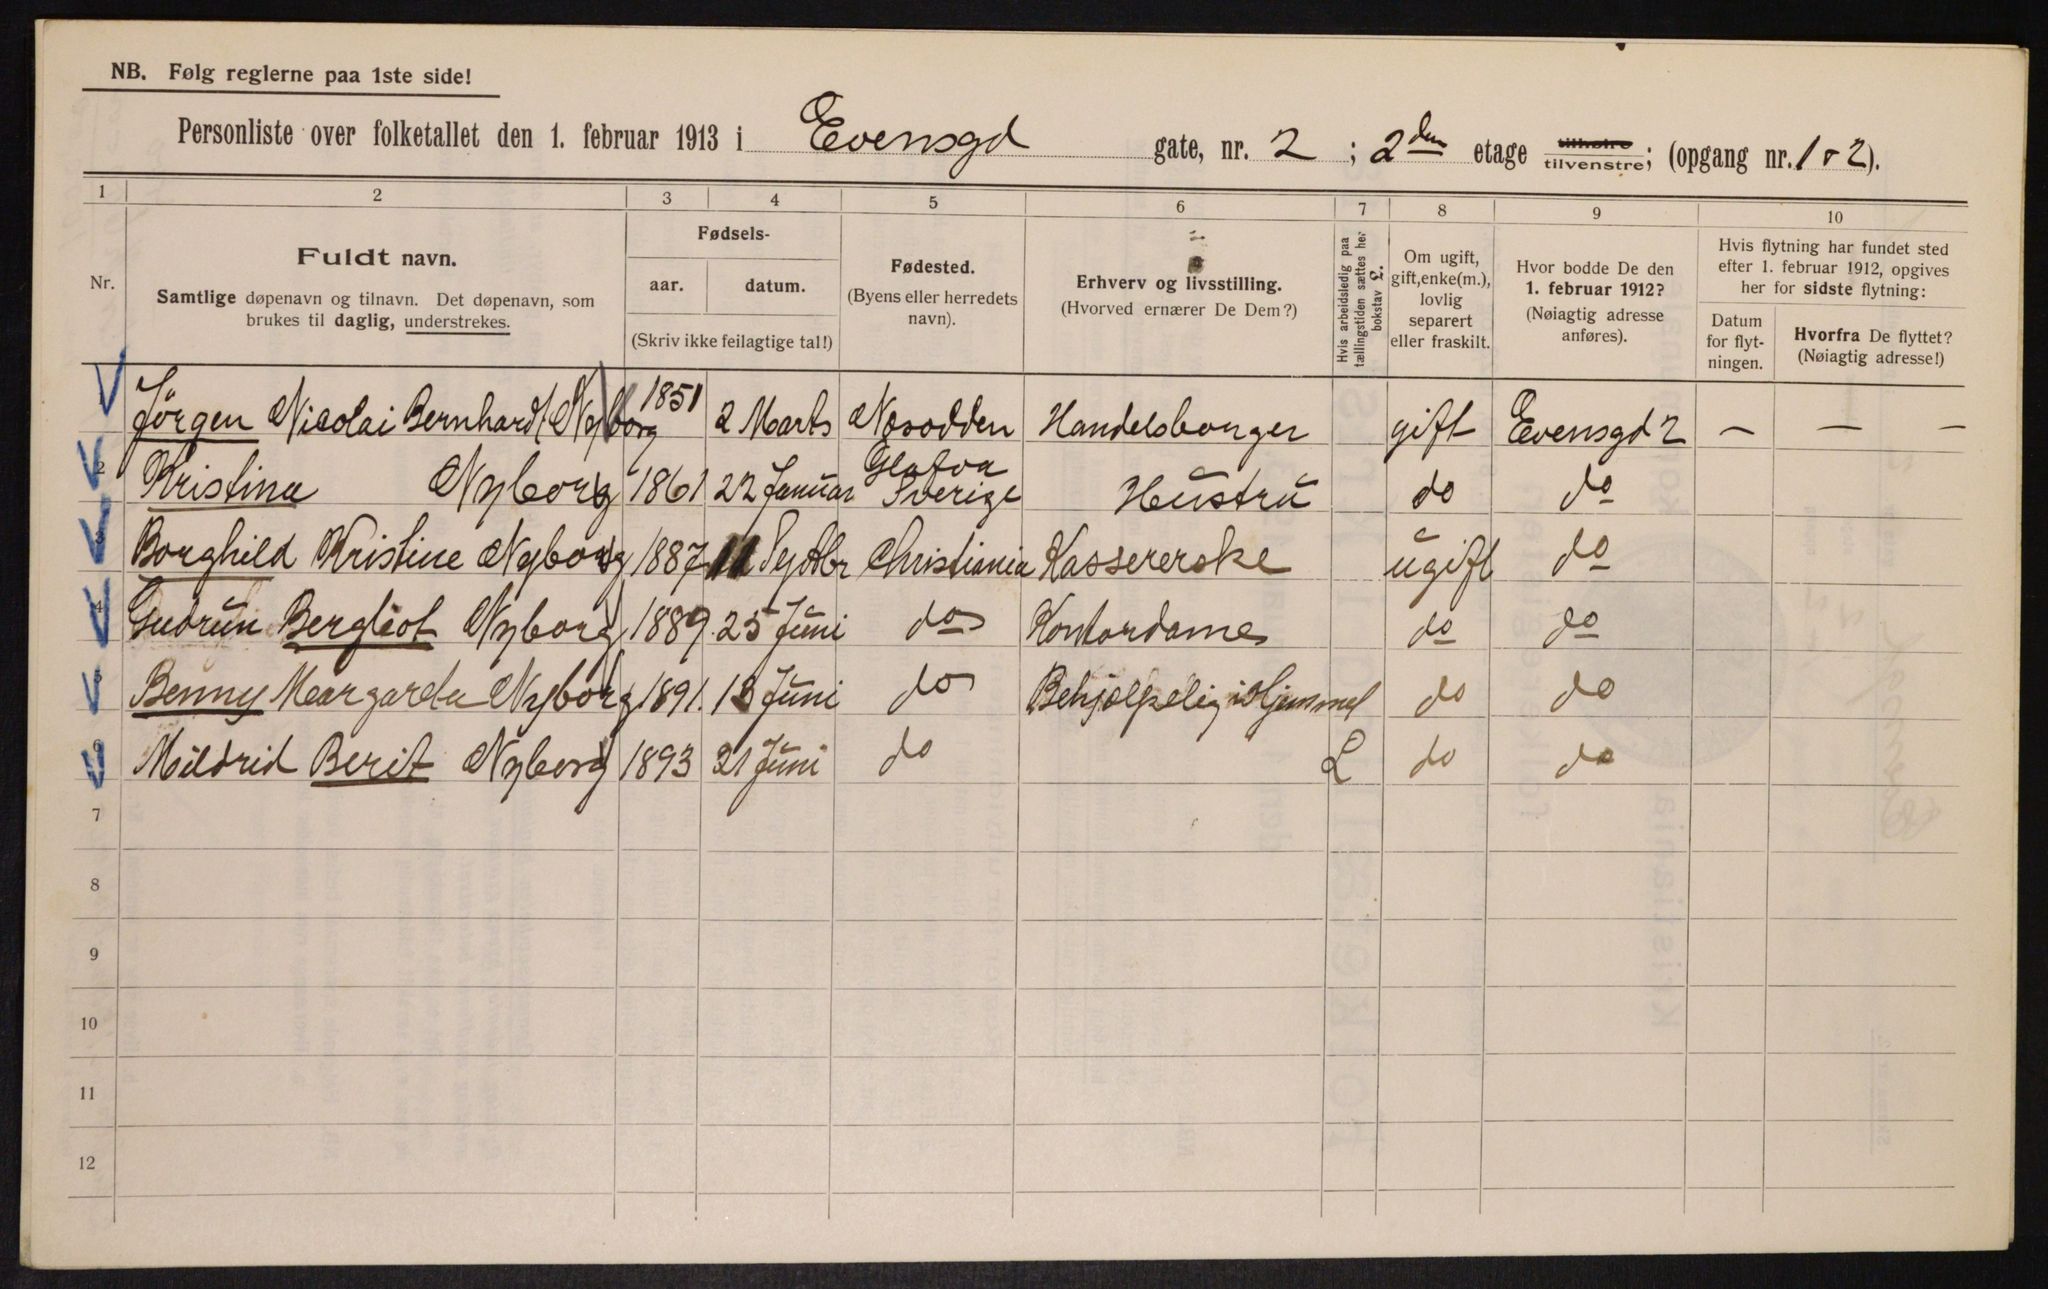 NB. Følg reglerne paa 1ste side!
Personliste over folketallet den 1. februar 1913 i Evensgd gate, nr. 2 ; 2den etage tilhøire tilvenstre; (opgang nr. 1 o 2).
1 2 3 4 5 6 7 8 9 10
Nr.
Fuldt navn.
Samtlige døpenavn og tilnavn. Det døpenavn, som
brukes til daglig, understrekes.
Fødsels-
aar. datum.
(Skriv ikke feilagtige tal!)
Fødested.
(Byens eller herredets
navn).
Erhverv og livsstilling.
(Hvorved ernærer De Dem?)
Hvis arbeidsledig paa
tællingstiden sættes her
bokstav L.
Om ugift,
gift,enke(m.),
lovlig
separert
eller fraskilt.
Hvor bodde De den
1. februar 1912?
(Nøiagtig adresse
anføres).
Hvis flytning har fundet sted
efter 1. februar 1912, opgives
her for sidste flytning:
Datum
for flyt-
ningen.
Hvorfra De flyttet?
(Nøiagtig adresse!)
1 Jörgen Nicolai Bernhardt Nyborg 1851 2 Marts Næsodden Handelsborger gift Evensgd 2 — — —
2 Kristina Nyborg 1861 22 Januar Glafva Sverige Hustru do do
3 Borghild Kristine Nyborg 1887 11 Septbr Christiania Kassererske ugift do
4 Gudrun Bergliot Nyborg 1889. 25 Juni do Kontordame do do
5 Benny Margareta Nyborg 1891. 13 Juni do Behjælpelig i Hjemmet do do
6 Mildrid Berit Nyborg 1893 21 Juni do L do do
7
8
9
10
11
12